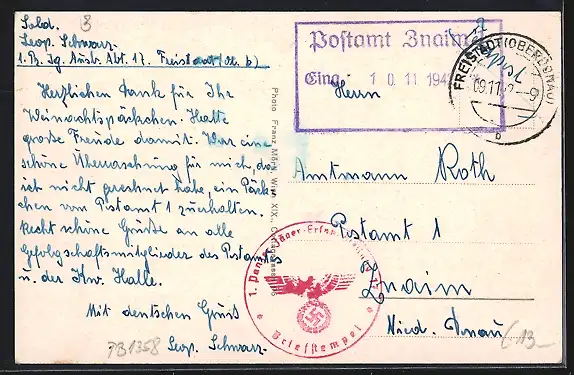 Sold.
Leop. Schwarz.
1. Pz. Jg. Ausb. Abt. 17. Freistadt
Herzlichen Dank für Ihr
Weihnachtspäckchen. Hatte
große Freude damit. War eine
schöne Überraschung für mich, da
ich nicht gerechnet habe, ein Päck-
chen vom Postamt 1 zu erhalten.
Recht schöne Grüße an alle
Gefolgschaftsmitglieder des Postamts
u. der Kw. Halle.
Mit deutschen Gruß
Leop. Schwarz.
PB1358
Photo Franz Mörtl, Wien XIX.,
Postamt Znaim
Eing. 10 11 194
FREISTADT (OBERDONAU)
09.11.
b
Herrn
Amtmann Roth
Postamt 1
Znaim
Nied. Donau
1. Panz. Jäger-Ersatz
Briefstempel